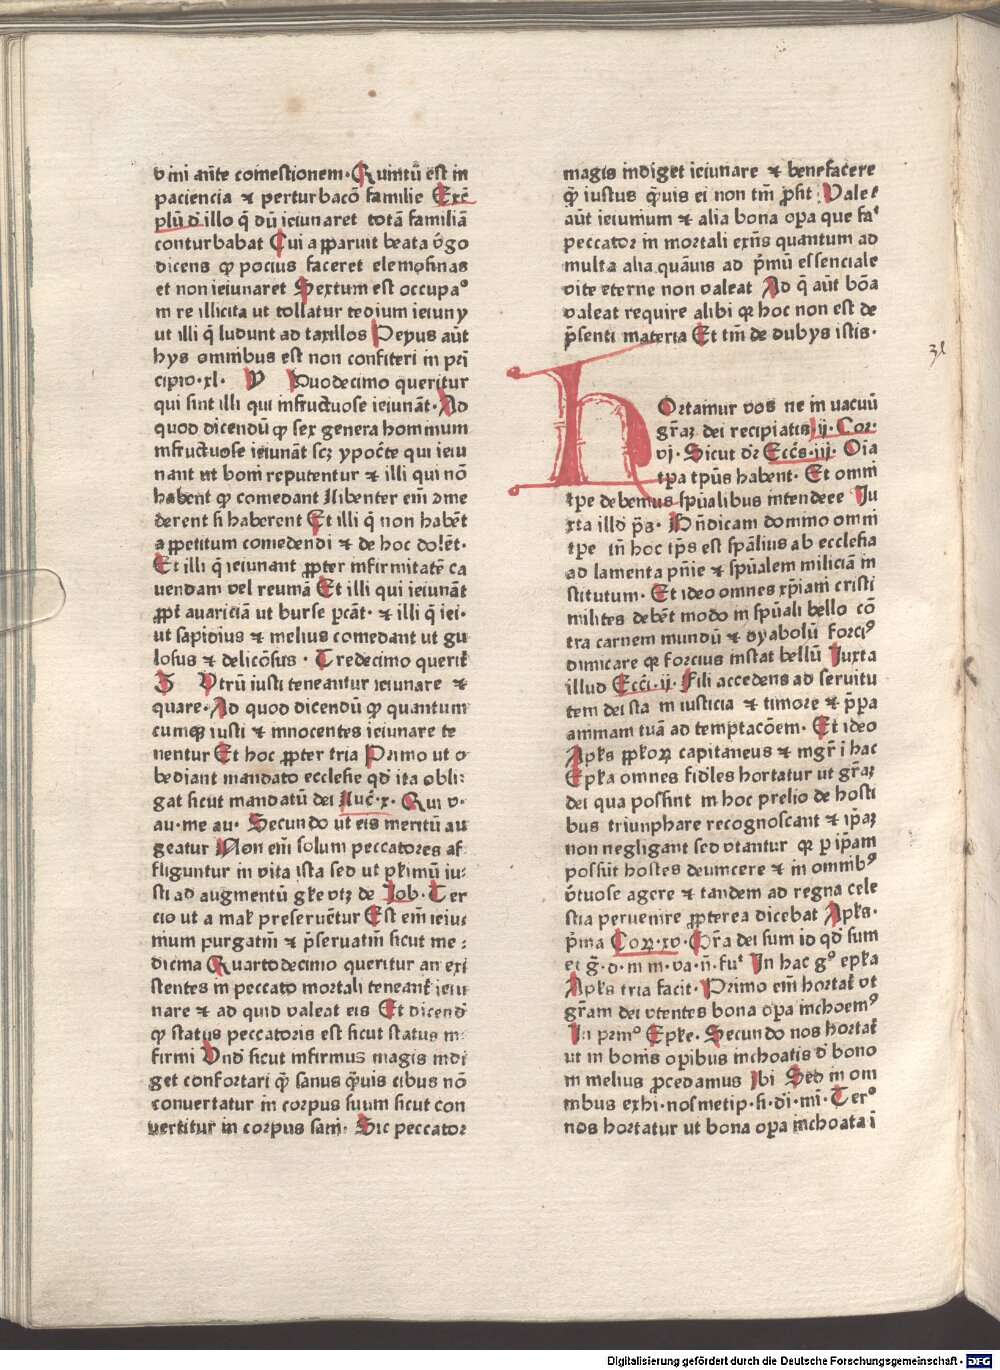 vini an̄te comestionem· Quintū est in
paciencia ⁊ perturbacō familie Exē
plū d̄ illo q̄ dū ieiunaret totā familiā
conturbabat Cui apparuit beata v̄go
dicens ꝙ pocius faceret elemosinas
et non ieiunaret Sextum est occupaº
in re illicita ut tollatur tedium ieiuny
ut illi q̄ ludunt ad taxillos Peyus aūt
hys omnibus est non confiteri in prī
cipio·xl· V Duodecimo queritur
qui sint illi qui infructuose ieiunāt· Ad
quod dicendū ꝙ sex genera hominum
infructuose ieiunāt scꝫ ypoc̄te qui ieiu
nant ut boni reputentur ⁊ illi qui nō
habent ꝙ comedant llibenter em̄ ꝯme
derent si haberent Et illi q̄ non habēt
appetitum comedendi ⁊ de hoc dolēt·
Et illi q̄ ieiunant ꝓpter infirmitatē ca
uendam vel reumā Et illi qui ieiunāt
ꝓpt̄ auariciā ut burse ꝑcāt· ⁊ illi q̄ iei·
ut sapidius ⁊ melius comedant ut gu
losus ⁊ delicōsus · Tredecimo querit̄
Vtrū iusti teneantur ieiunare ⁊
quare· Ad quod dicendū ꝙ quantum
cumqꝫ iusti ⁊ innocentes ieiunare te
nentur Et hoc ꝓpter tria Primo ut o
bediant mandato ecclesie qd̄ ita obli·
gat sicut mandatū dei Luc̄·x· Qui v·
au·me au· Secundo ut eis meritū au
geatur Non em̄ solum peccatores af
fliguntur in vita ista sed ut pl̄imū iu·
sti ad augmentū gl̄ie vtꝫ de Iob· Ter
cio ut a mal̄ preseruētur Est em̄ ieiu
nium purgatm̄ ⁊ p̄seruatm̄ sicut me·
dicina Quartodecimo queritur an exi
stentes in peccato mortali teneant̄ ieiu
nare ⁊ ad quid valeat eis Et dicend̄
ꝙ status peccatoris est sicut status in·
firmi Vnd̄ sicut infirmus magis indi
get confortari q̄ sanus q̄uis cibus nō
conuertatur in corpus suum sicut con
vertitur in corpus sani· Sic peccator
magis indiget ieiunare ⁊ benefacere
q̄ iustus q̄uis ei non tm̄ ꝓsit Vale
aūt ieiunium ⁊ alia bona opa que faᵗ
peccator in mortali exn̄s quantum ad
multa alia quāuis ad p̄mū essenciale
vite eterne non valeat Ad q̄ aūt bōa
valeat require alibi qꝛ hoc non est de
p̄senti materia Et tm̄ de dubys istis·
HOrtamur vos ne in vacuū
gr̄aꝫ dei recipiatis·ij·Cor·
vj· Sicut dr̄ Ecc̄s·iij· Oīa
tpa tpūs habent· Et omni
tpe debemus spūalibus intendeee Iu
xta illd̄ p̄s· Bn̄dicam domino omni
tpe in̄ hoc tp̄s est spālius ab ecclesia
ad lamenta pn̄ie ⁊ spūalem miliciā in
stitutum· Et ideo omnes xp̄iani cristi
milites debēt modo in spūali bello cō
tra carnem mundū ⁊ dyabolū forciꝰ
dimicare qꝛ forcius instat bellū Iuxta
illud Ecci·ij· Fili accedens ad seruitu
tem dei sta in iusticia ⁊ timore ⁊ p̄pa
animam tuā ad temptacōem· Et ideo
Apl̄s ꝓpl̄oꝝ capitaneus ⁊ mgr̄ ī hac
Epl̄a omnes fidēles hortatur ut gr̄aꝫ
dei qua possint in hoc prelio de hosti
bus triunphare recognoscant ⁊ ip̄aꝫ
non negligant sed vtantur qꝛ p ip̄am
possūt hostes deuincere ⁊ in omnibꝰ
v̄tuose agere ⁊ tandem ad regna cele
stia peruenire ꝓpterea dicebat Apl̄s·
p̄ma Coꝝ·xv· Gr̄a dei sum id qd̄ sum
et g̅·d·in m·va·n̄·fuᵗ In hac gº epl̄a
Apl̄s tria facit· Primo em̄ hortat̄ vt
gr̄am dei vtentes bona opa inchoemꝰ
In prinº Epl̄e· Secundo nos hortat̄
ut in bonis opibus inchoatis d̄ bono
in melius ꝓcedamus Ibi Sed in om
nibus exhi·nosmetip·si·di·mi· Terº
nos hortatur ut bona opa inchoata ī
Digitalisierung gefördert durch die Deutsche Forschungsgemeinschaft · DFG